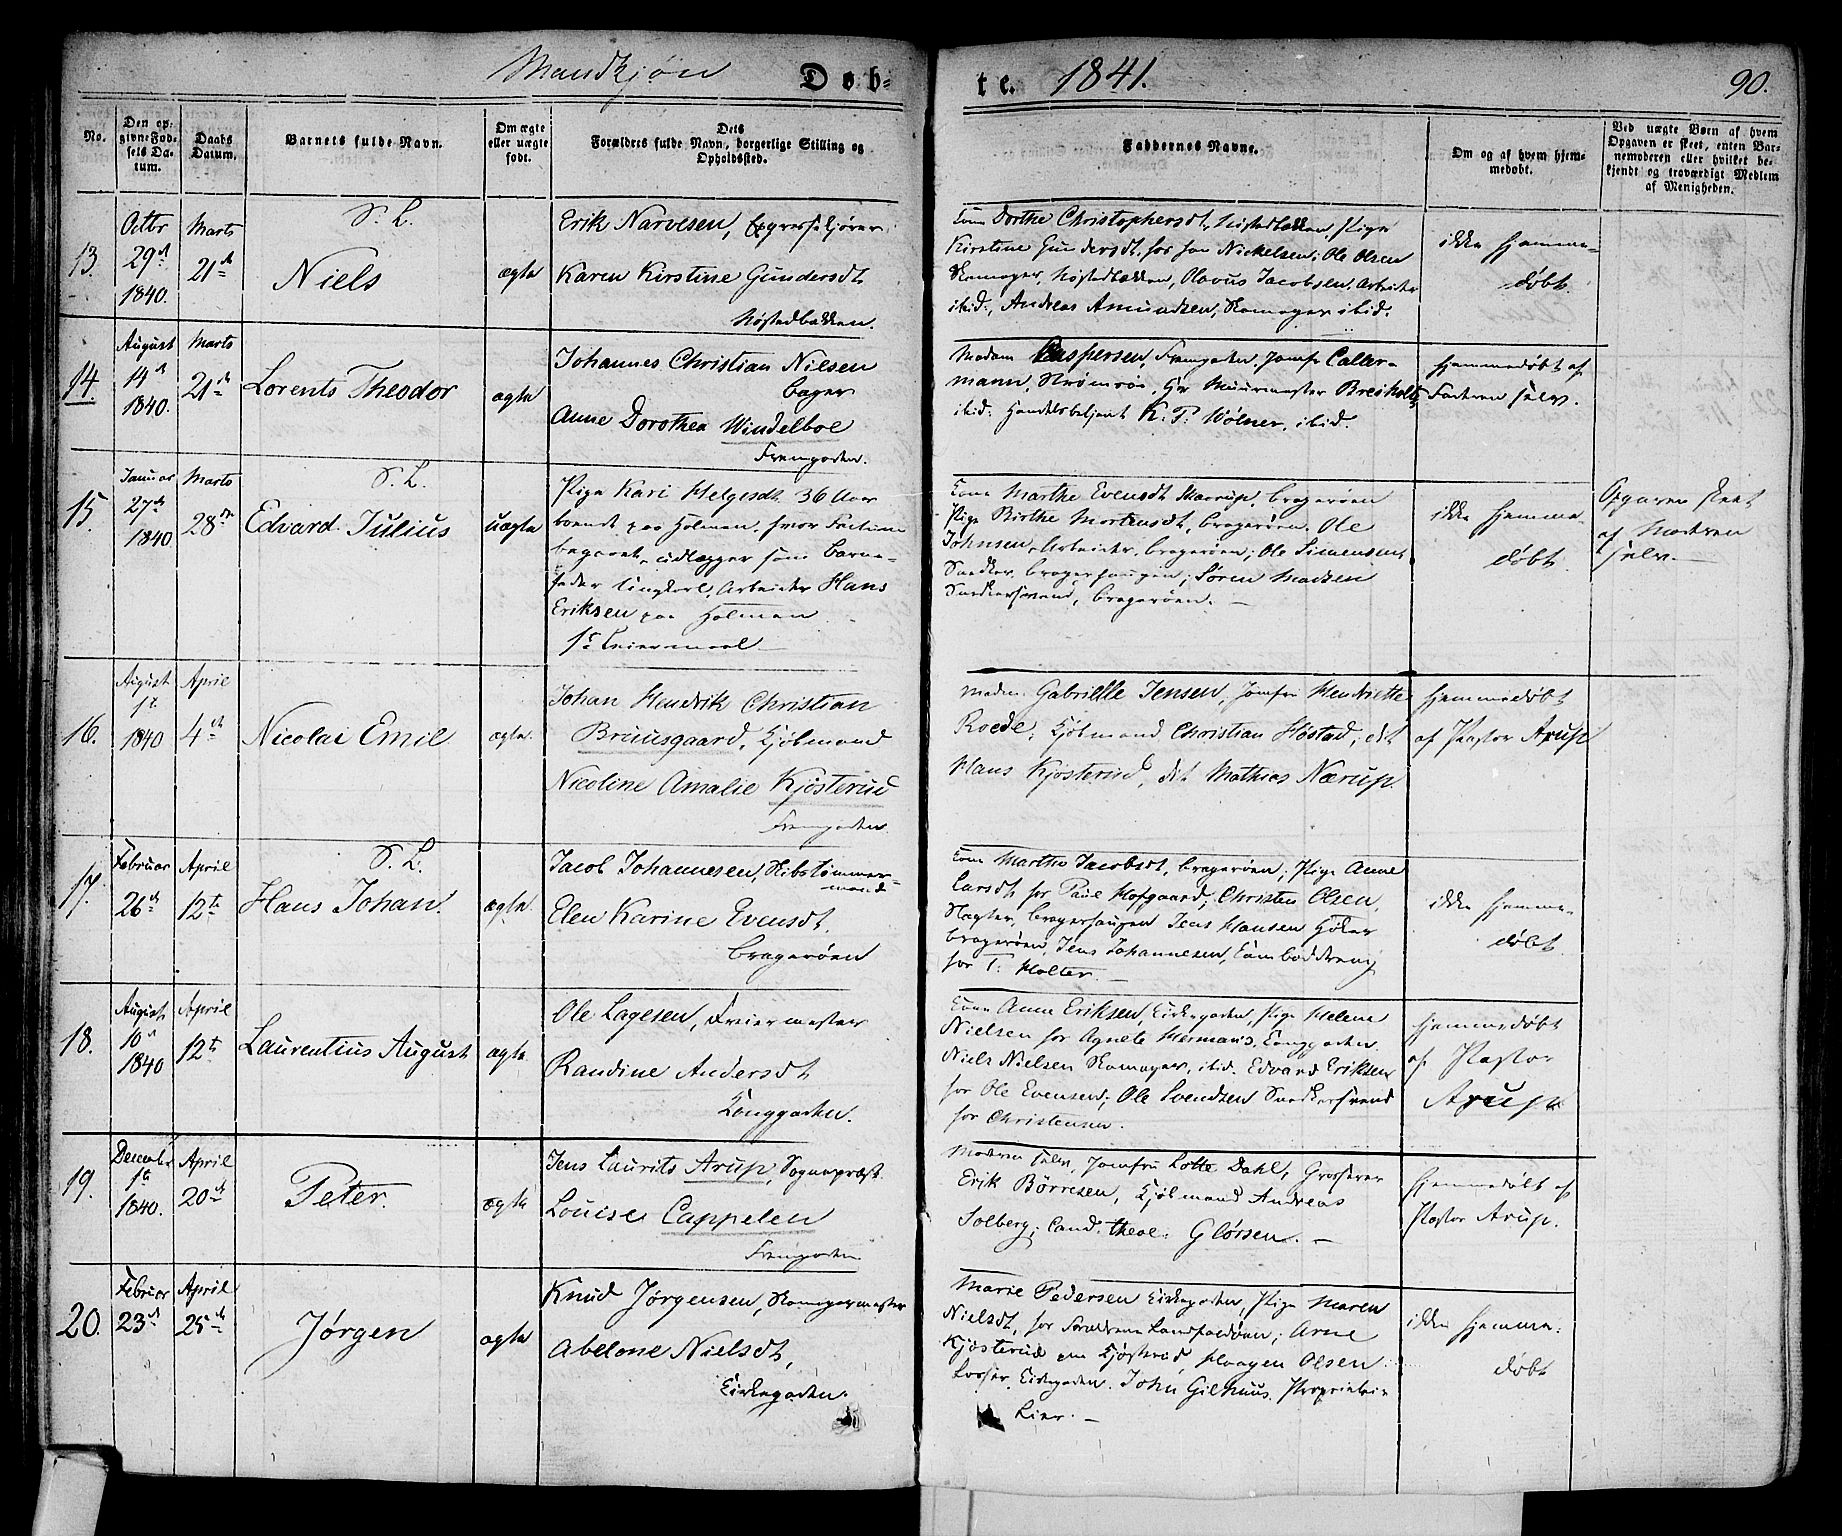 Mandkjøn Døb=
te. 1841. 90.
No.
Den op=
givne Fød=
sels Da=
tum.
Daabs
Datum.
Barnets fulde Navn.
Om ægte
eller uægte
født.
Dets
Forældres fulde Navn, borgerlige Stilling og
Opholdssted.
Faddernes Navne.
Om og af hvem hjem=
medøbt.
Ved uægte Børn af hvem
Opgaven er skeet, enten Bar=
nemoderen eller hvilket be=
kjendt og troværdigt Medlem
af Menigheden.
13.
Octbr
29de
1840.
Marts
21de
S. L.
Niels
ægte
Erik Narvesen,
Karen Kirstine Gundersdt
Høstadbakken.
Kone Dorthe Christophersdt, Høstadbakken, Pige
Kirstine Gundersdt. for Jon Nickelsen; Ole Olsen
Skomager, Høstadbakken, Olavus Jacobsen, Arbeider
ibid., Andreas Amundsen, Skomager ibid.
ikke hjemme=
døbt.
14.
August
14de
1840.
Marts
21de
Lorents Theodor
ægte
Johannes Christian Nielsen
Bager
Anne Dorothea Windelboe
Fremgaden.
Madam Caspersen, Fremgaden, Jomfr Caller=
mann, Strømsøe, Hr Muurmester Breiholtz
ibid: Handelsbetjent K. P. Wølner, ibid.
Hjemmedøbt af
Faderen selv.
15.
Januar
27de
1840
Marts
28de
S. L.
Edvard Julius
uægte
Pige Kari Helgesdt. 36 Aar
boende paa Holmen,
udlægger som Barne=
fader Ungkarl, Arbeider Hans
Eriksen paa Holmen
1ste Leiermaal
Kone Marthe Evensdt, Bragerøen
Pige Birthe Mortensdt, Bragerøen. Ole
Johnsen, Arbeider, Bragerøen; Ole Simensen,
Snedker, Bragerhougen; Søren Madsen
Snedkersvend, Bragerøen. —
ikke hjemme=
døbt.
Opgaven skeet
af Moderen
selv. —
16.
August
1ste
1840
April
4de
Nicolai Emil
ægte.
Johan Hendrik Christian
Bruusgaard, Kjøbmand
Nicoline Amalie Kjøsterud
Fremgaden
Madm. Gabrielle Jensen, Jomfru Henriette
Roede, Kjøbmand Christian Høstad; dit
Hans Kjøsterud, dit Mathias Nærup.
Hjemmedøbt
af Pastor Arup
17.
Februar
26de
April
12te
S. L.
Hans Johan.
ægte
Jacob Johannesen, Skibstømmer=
mand
Elen Karine Evensdt.
Bragerøen
Kone Marthe Jacobsdt, Bragerøen, Pige Anne
Larsdt. for Paul Hofgaard; Christen Olsen,
Slagter, Bragerhaugen Jens Hansen Høker
Bragerøen, Jens Johannesen,
for T. Holter. —
ikke hjemme=
døbt
18.
August
10de
1840
April
12te
Laurentius August
ægte.
Ole Lagesen,
Randine Andersdt
Konggaden.
Kone Anne Eriksen, Kirkegaden, Pige Helene
Nielsen for Agnete Herman's, Konggaden.
Niels Nielsen Skomager, ibid. Edvard Eriksen
for Ole Evensen; Ole Svendsen Snedkersvend
for Christensen.
Hjemmedøbt
af Pastor
Arup
19.
Decembr
1te
1840.
April
20de
Peter.
ægte
Jens Laurits Arup, Sognepræst.
Louise Cappelen
Fremgaden
Moderen selv, Jomfru Lotte Dahl, Grosserer
Erik Børresen, Kjøbmand Andreas
Solberg; Cand. theol: Glørsen. —
Hjemmedøbt af
Pastor Arup.
20.
Februar
23de
April
25de
Jørgen
ægte
Knud Jørgensen, Skomagermester
Abelone Nielsdt,
Kirkegaden.
Marie Pedersen Kirkegaden, Pige Maren
Nielsdt, for Arne
Kjøsterud paa Kjøsterud, Haagen Olsen
Kirkegaden. John Gilhuus. Proprietair
Lier. —
ikke hjemme=
døbt